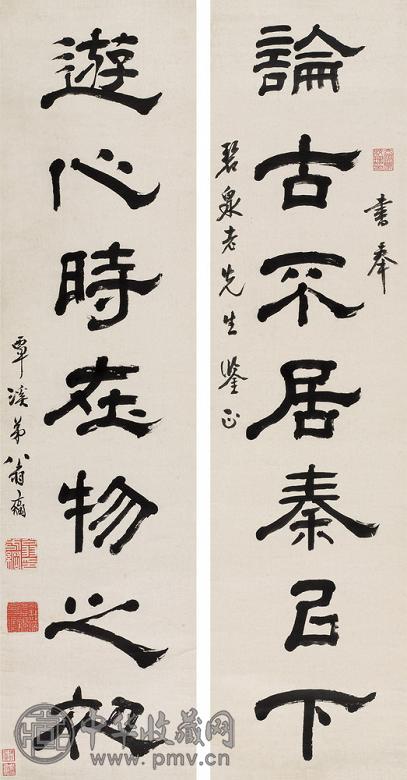 論古不居秦㠯下
書奉
碧泉老先生鑒正
遊心時在物之初
覃溪弟翁
中华收藏网
www.pmv.cn